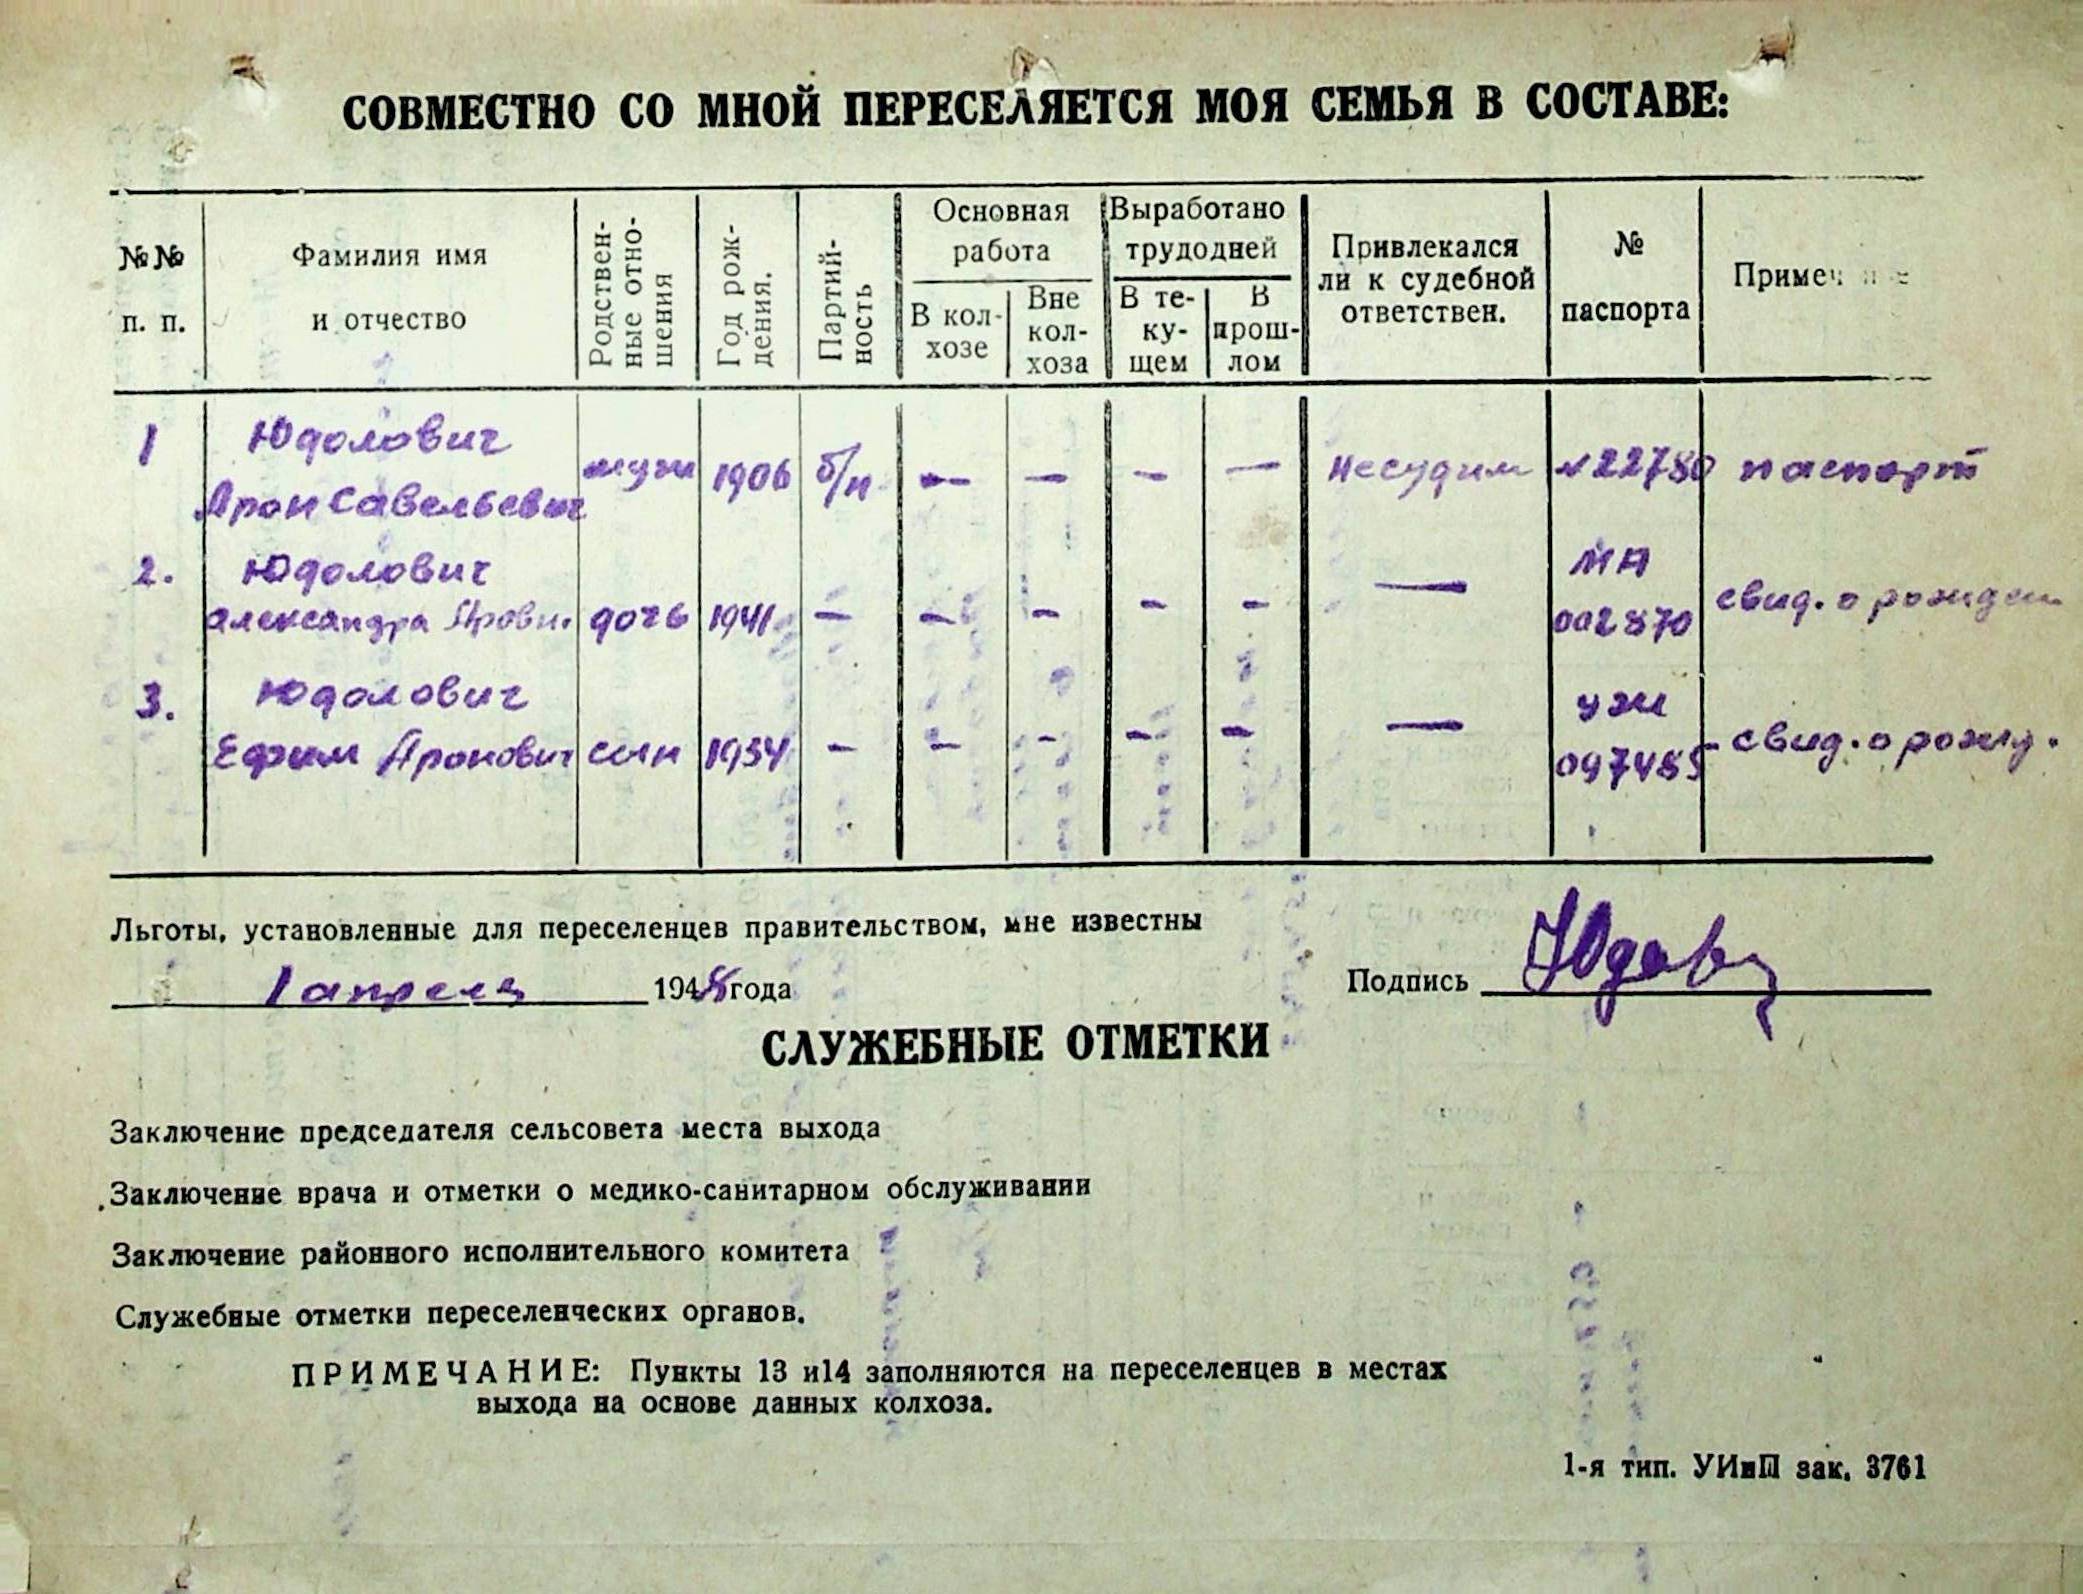 СОВМЕСТНО СО МНОЙ ПЕРЕСЕЛЯЕТСЯ МОЯ СЕМЬЯ В СОСТАВЕ:
№№ п. п.
Фамилия имя и отчество
Родствен-
ные отно-
шения
Год рож-
дения.
Партий-
ность
Основная
работа
В кол-
хозе
Вне
кол-
хоза
Выработано
трудодней
В те-
ку-
щем
В
прош-
лом
Привлекался
ли к судебной
ответствен.
№
паспорта
Примеч
1 Юдолович
Арон Савельевич муж 1906 б/п - - - - несудим №22780 паспорт
2. Юдолович МА
александра Арови. дочь 1941 - - - - - — 002870 свид. о рожден
3. Юдолович УЖ
Ефим Аронович сын 1934 - - - - - — 097485 - свид. о рожд.
Льготы, установленные для переселенцев правительством, мне известны
1 апреля 1948 года
Подпись
СЛУЖЕБНЫЕ ОТМЕТКИ
Заключение председателя сельсовета места выхода
Заключение врача и отметки о медико-санитарном обслуживании
Заключение районного исполнительного комитета
Служебные отметки переселенческих органов.
ПРИМЕЧАНИЕ: Пункты 13 и14 заполняются на переселенцев в местах
выхода на основе данных колхоза.
1-я тип. УИиП зак. 3761